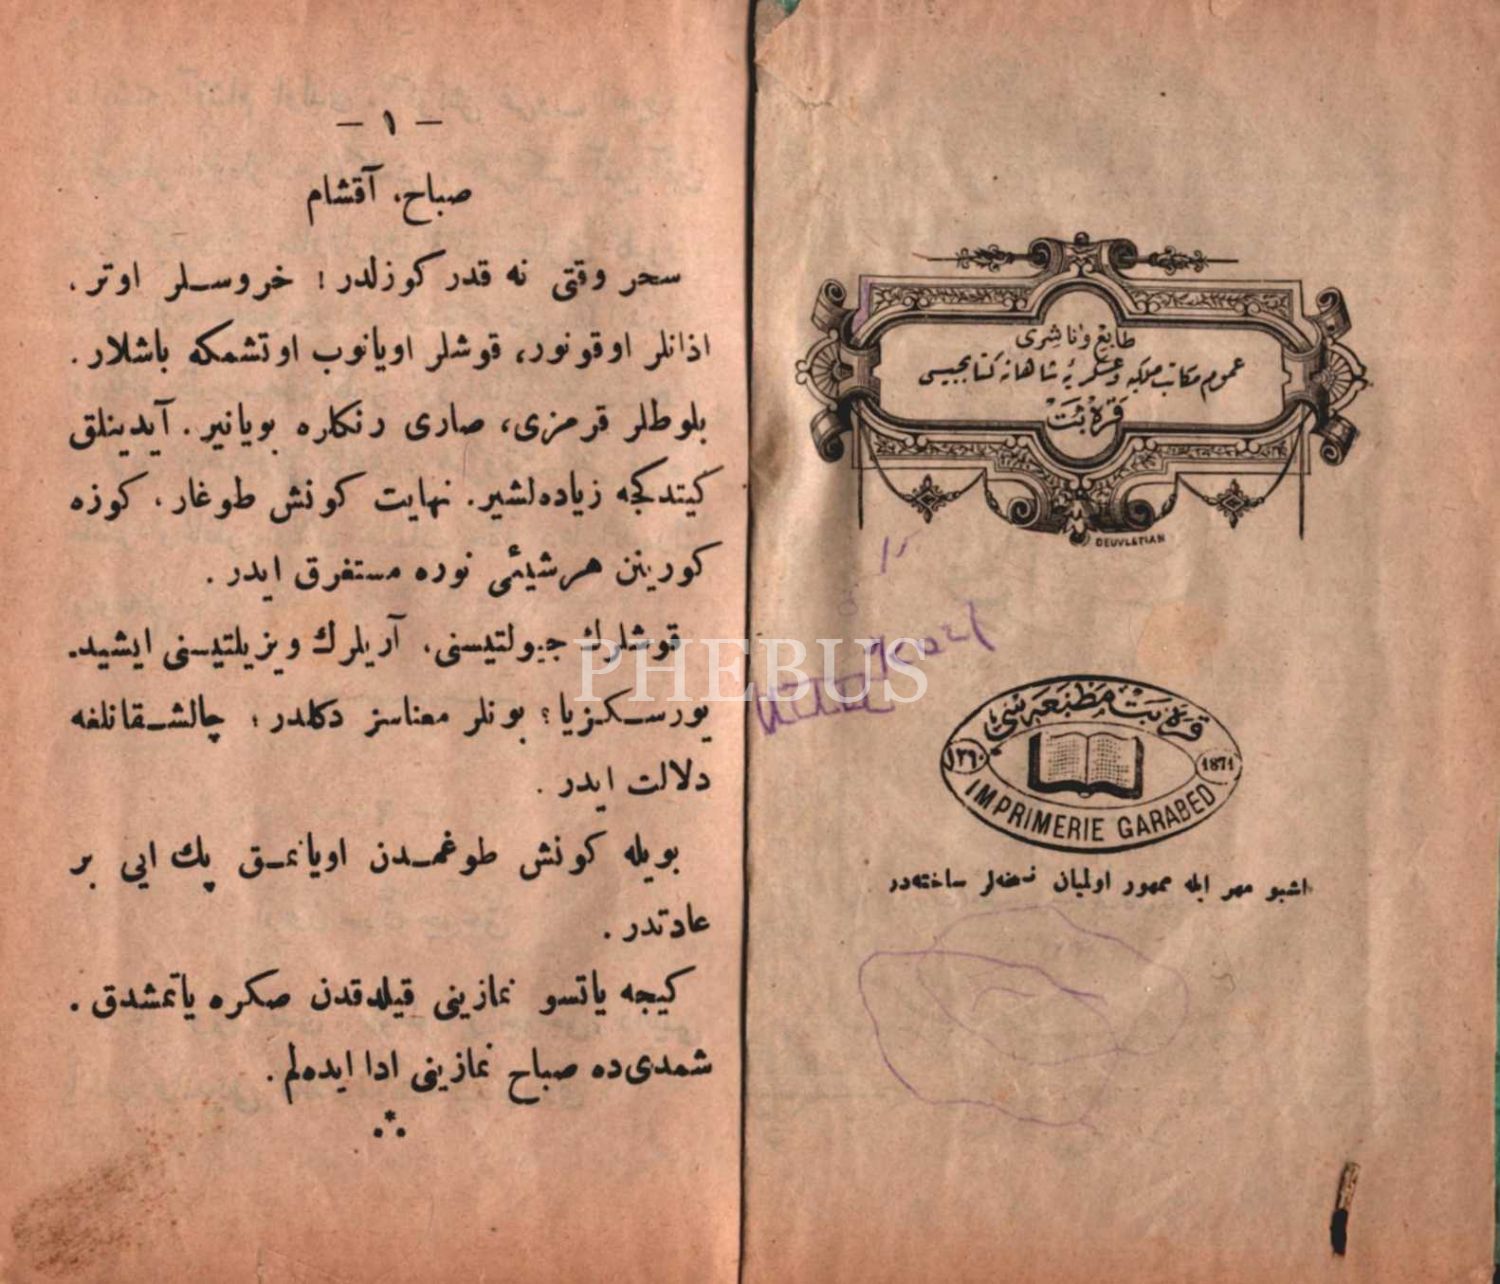 طابع و ناشری
عموم مکاتب ملکیه و عسکریۀ شاهانه کتابجیسی
قره بت
DEUVLETIAN
قره بت مطبعه سی
١٢٦٠
1871
IMPRIMERIE GARABED
اشبو مهر ایله ممهور اولمیان نسخه‌لر ساخته‌در
— ١ —
صباح، آقشام
سحر وقتی نه قدر کوزلدر ! خروسلر اوتر .
اذانلر اوقونور، قوشلر اویانوب اوتشمکه باشلار .
بلوطلر قرمزی، صاری رنکلره بویانیر . آیدینلق
کیتدکجه زیاده‌لشیر . نهایت کونش طوغار، کوزه
کورینن هر شیئی نوره مستغرق ایدر .
قوشلرك جیولتیسنی، آریلرك ویزیلتیسنی ایشید-
یورسکزیا ؟ بونلر معناسز دکلدر ؛ چالشقانلغه
دلالت ایدر .
بویله کونش طوغمدن اویانمق پك ایی بر
عادتدر .
کیجه یاتسو نمازینی قیلدقدن صکره یاتمشدق .
شمدی ده صباح نمازینی ادا ایده‌لم .
PHEBUS